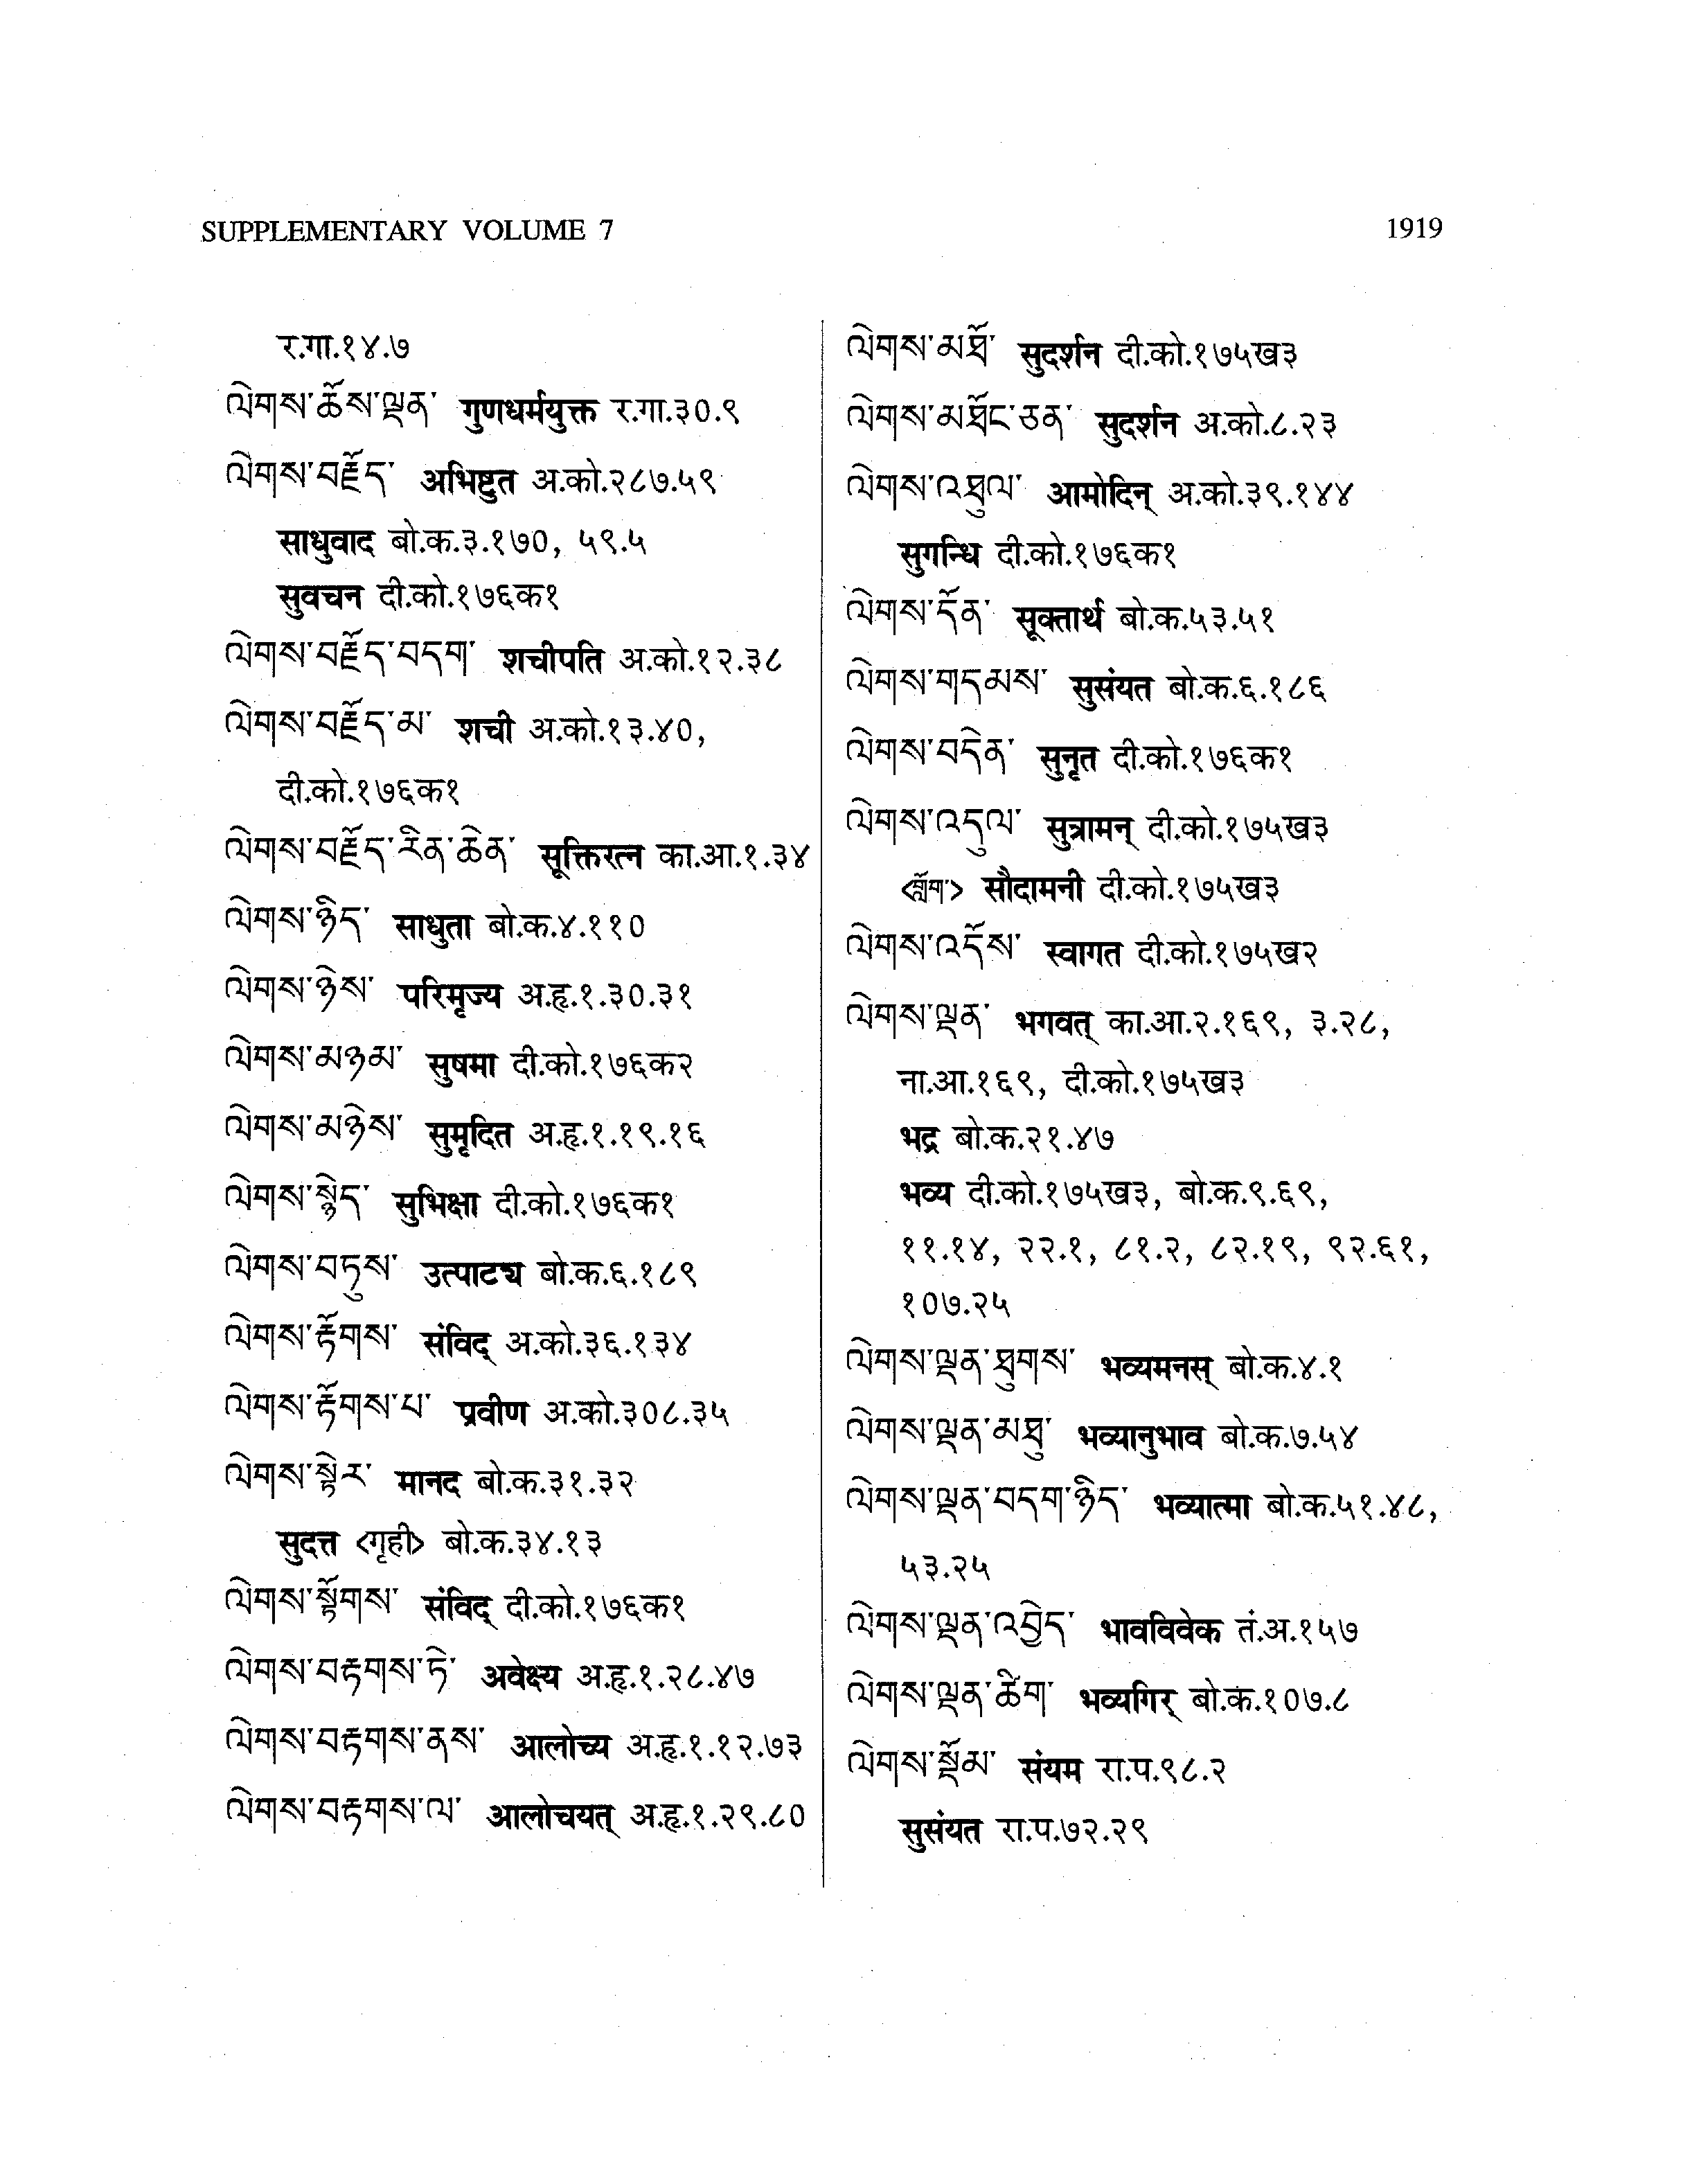 SUPPLEMENTARY VOLUME 7 1919
र.गा.१४.७
ལེགས་ཆོས་ལྡན་ गुणधर्मयुक्त र.गा.३०.९
ལེགས་བརྗོད་ अभिष्टुत अ.को.२८७.५९
साधुवाद बो.क.३.१७०, ५९.५
सुवचन दी.को.१७६क१
ལེགས་བརྗོད་བདག་ शचीपति अ.को.१२.३८
ལེགས་བརྗོད་མ་ शची अ.को.१३.४०,
दी.को.१७६क१
ལེགས་བརྗོད་རིན་ཆེན་ सूक्तिरत्न का.आ.१.३४
ལེགས་ཉིད་ साधुता बो.क.४.११०
ལེགས་ཉེས་ परिमृज्य अ.हृ.१.३०.३१
ལེགས་མཉམ་ सुषमा दी.को.१७६क२
ལེགས་མཉེས་ सुमृदित अ.हृ.१.१९.१६
ལེགས་སྙེད་ सुभिक्षा दी.को.१७६क१
ལེགས་བཏུས་ उत्पाट्य बो.क.६.१८९
ལེགས་རྟོགས་ संविद् अ.को.३६.१३४
ལེགས་རྟོགས་པ་ प्रवीण अ.को.३०८.३५
ལེགས་སྟེར་ मानद बो.क.३१.३२
सुदत्त <गृही> बो.क.३४.१३
ལེགས་སྟོགས་ संविद् दी.को.१७६क१
ལེགས་བརྟགས་ཏེ་ अवेक्ष्य अ.हृ.१.२८.४७
ལེགས་བརྟགས་ནས་ आलोच्य अ.हृ.१.१२.७३
ལེགས་བརྟགས་ལ་ आलोचयत् अ.हृ.१.२९.८०
ལེགས་མཐོ་ सुदर्शन दी.को.१७५ख३
ལེགས་མཐོང་ཅན་ सुदर्शन अ.को.८.२३
ལེགས་འཐུལ་ आमोदिन् अ.को.३९.१४४
सुगन्धि दी.को.१७६क१
ལེགས་དོན་ सूक्तार्थ बो.क.५३.५१
ལེགས་གདམས་ सुसंयत बो.क.६.१८६
ལེགས་བདེན་ सुनृत दी.को.१७६क१
ལེགས་འདུལ་ सुत्रामन् दी.को.१७५ख३
<གློག་> सौदामनी दी.को.१७५ख३
ལེགས་འདོས་ स्वागत दी.को.१७५ख२
ལེགས་ལྡན་ भगवत् का.आ.२.१६९, ३.२८,
ना.आ.१६९, दी.को.१७५ख३
भद्र बो.क.२१.४७
भव्य दी.को.१७५ख३, बो.क.९.६९,
११.१४, २२.१, ८१.२, ८२.१९, ९२.६१,
१०७.२५
ལེགས་ལྡན་ཐུགས་ भव्यमनस् बो.क.४.१
ལེགས་ལྡན་མཐུ་ भव्यानुभाव बो.क.७.५४
ལེགས་ལྡན་བདག་ཉིད་ भव्यात्मा बो.क.५१.४८,
५३.२५
ལེགས་ལྡན་འབྱེད་ भावविवेक तं.अ.१५७
ལེགས་ལྡན་ཚིག་ भव्यगिर् बो.क.१०७.८
ལེགས་སྡོམ་ संयम रा.प.९८.२
सुसंयत रा.प.७२.२९